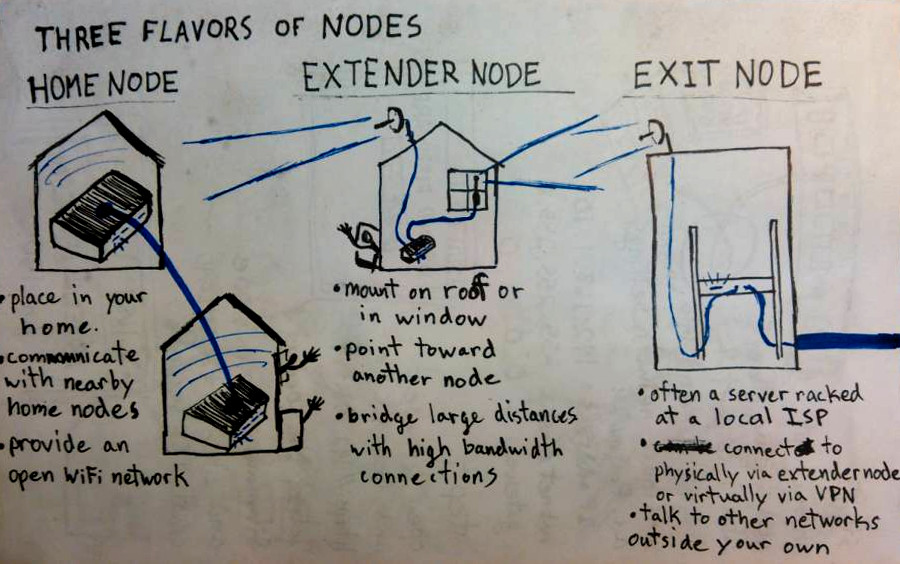 THREE FLAVORS OF NODES
HOME NODE
• place in your
home.
• communicate
with nearby
home nodes
• provide an
open WiFi network
EXTENDER NODE
• mount on roof or
in window
• point toward
another node
• bridge large distances
with high bandwidth
connections
EXIT NODE
• often a server racked
at a local ISP
• connected to
physically via extender node
or virtually via VPN
• talk to other networks
outside your own